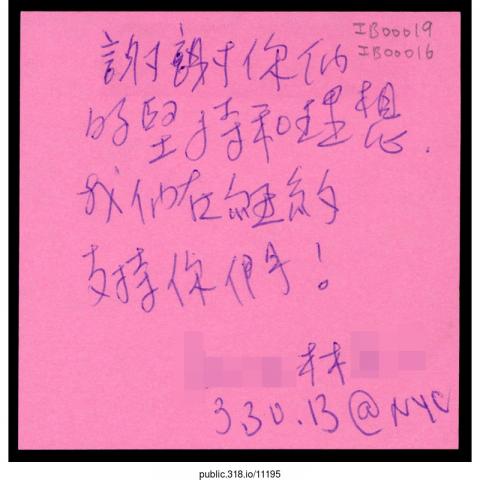 IB00019
IB00016
謝謝你们
的堅持和理想.
我们在紐約
支持你們!
林
3.30.13@NYC
public.318.io/11195